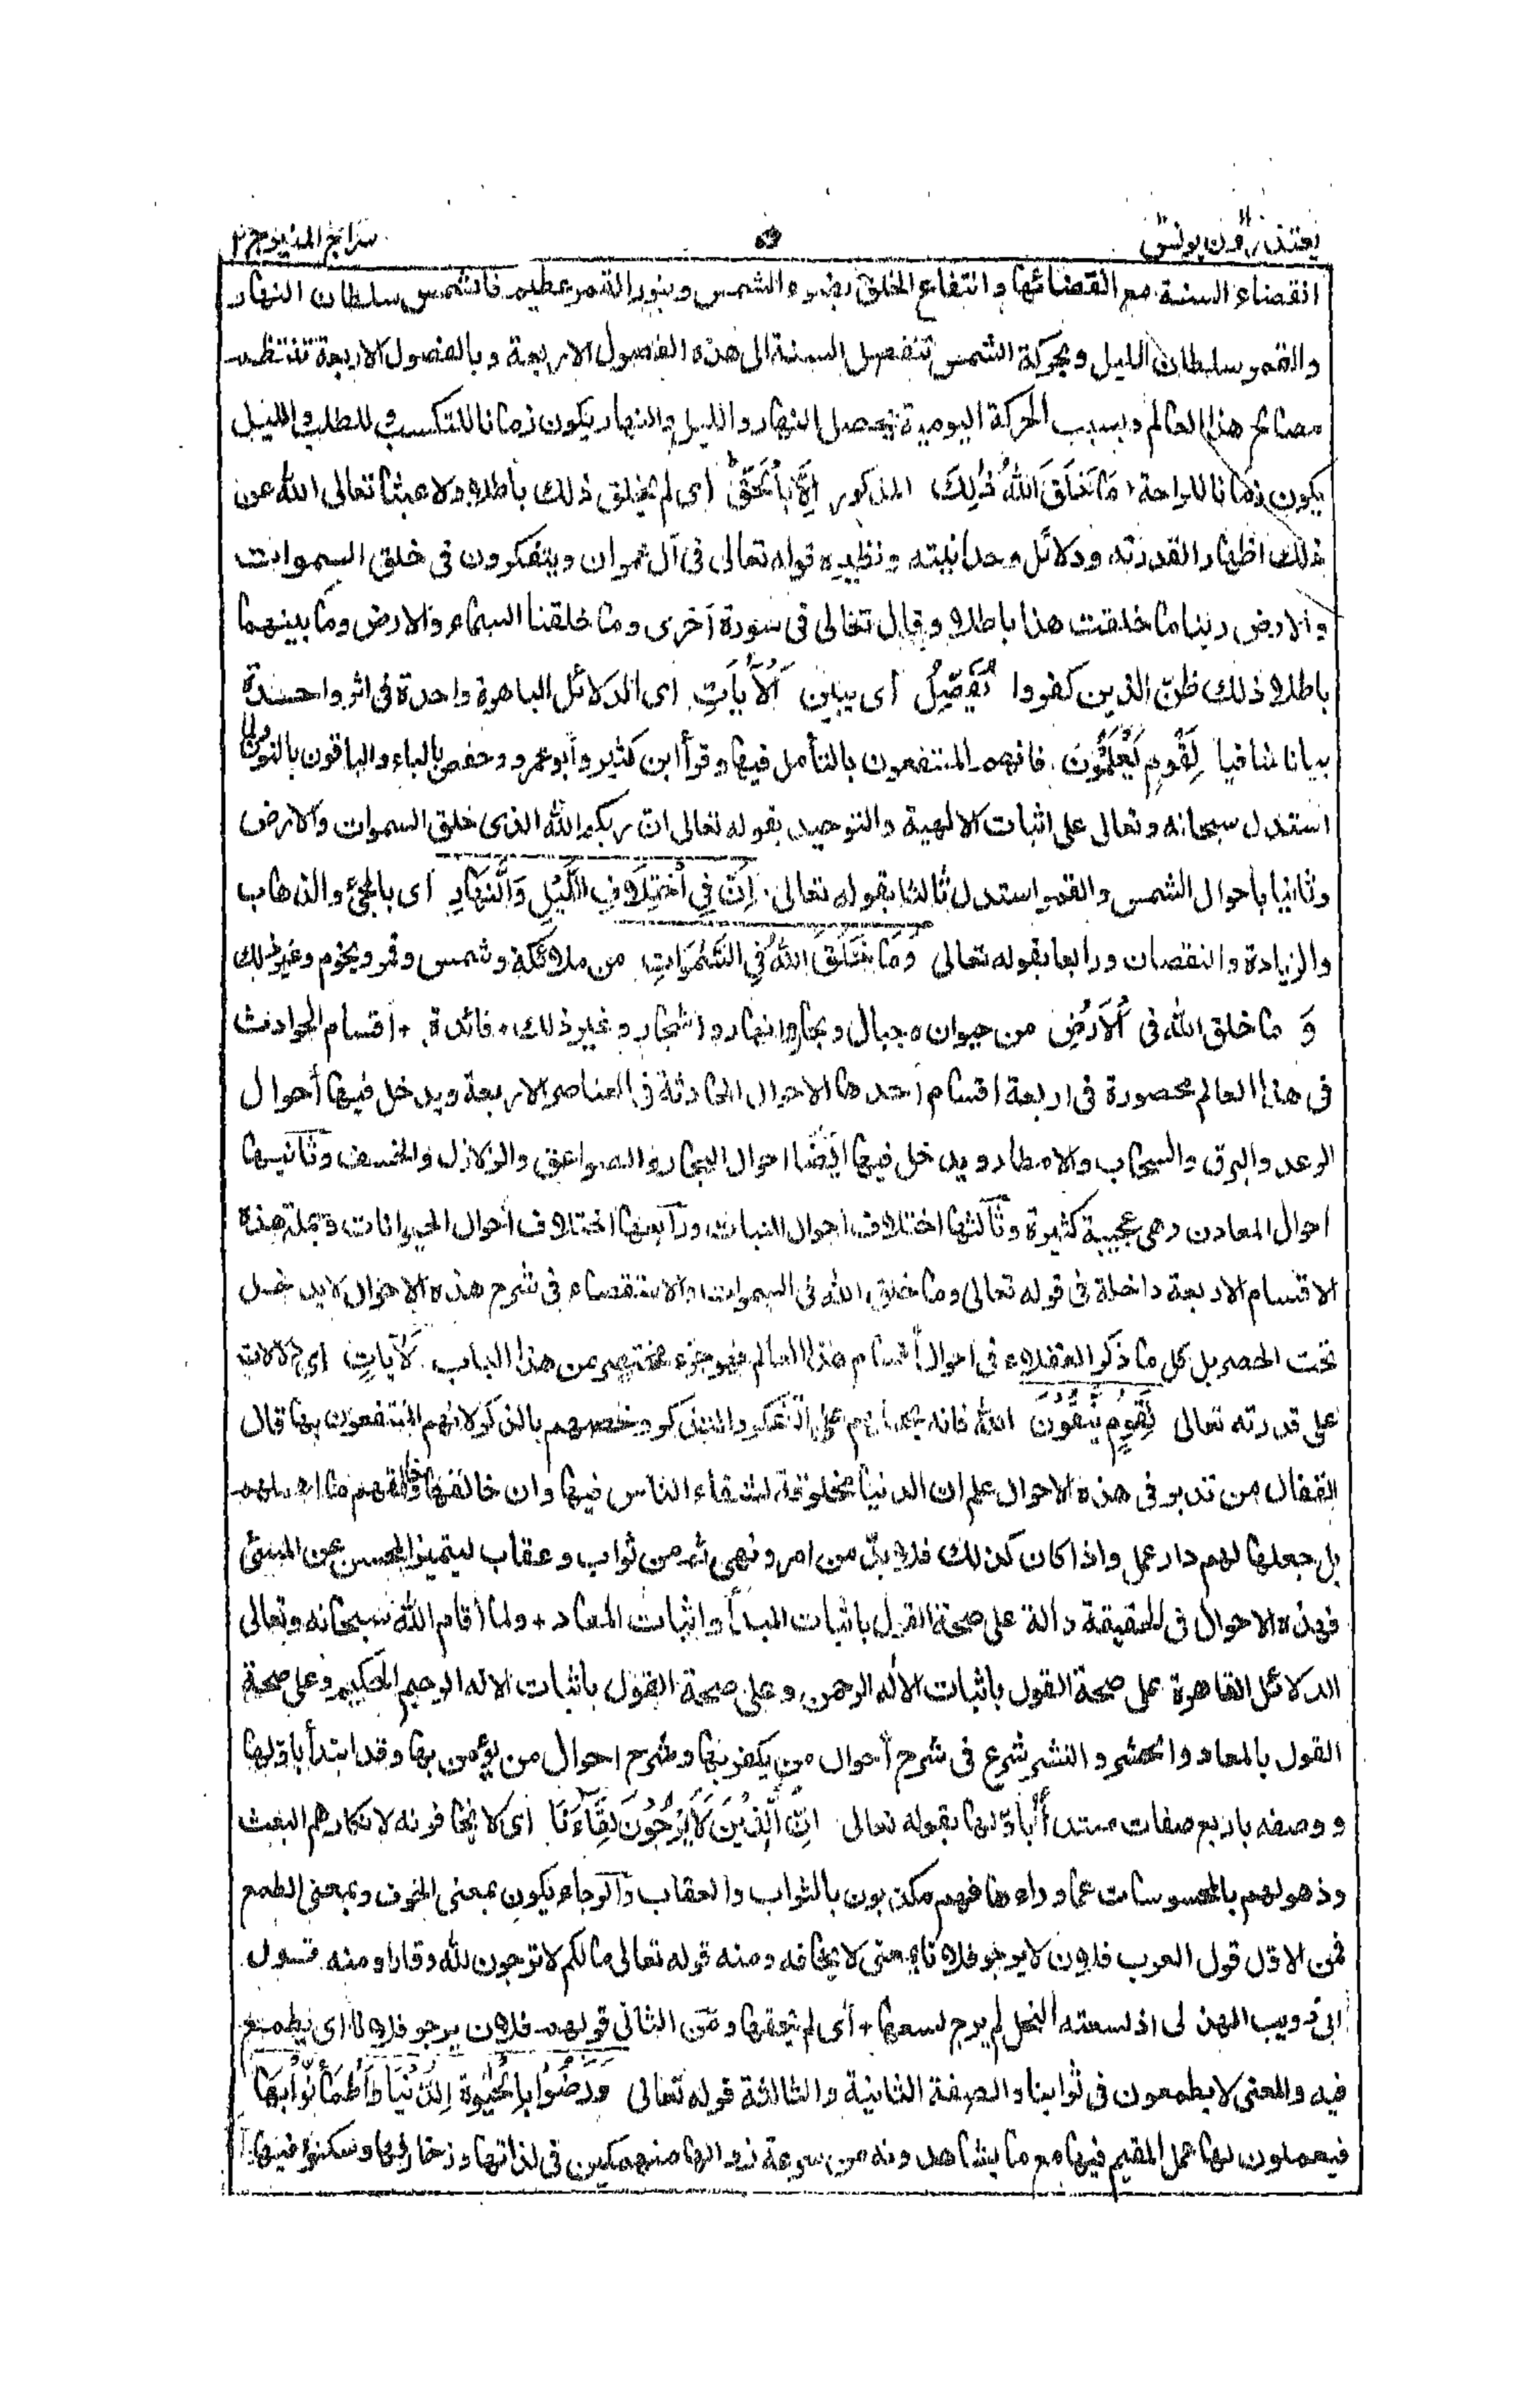 يعتذرون يونس
٥
سراج المنير ج ٢
انقضاء السنة مع انقضائها وانتفاع الخلق بضوء الشمس وبنور القمر عظيم فالشمس سلطان النهار
والقمر سلطان الليل وبحركة الشمس تنفصل السنة الى هذه الفصول الاربعة وبالفصول الاربعة تنتظم
مصالح هذا العالم وبسبب الحركة اليومية يحصل النهار والليل والنهار يكون زمانا للتكسب والطلب والليل
يكون زمانا للراحة مَا خَلَقَ اللهُ ذٰلِكَ المذكور اِلَّا بِالْحَقِّ اى لم يخلق ذلك باطلا ولا عبثا تعالى الله عن
ذلك اظهارا لقدرته ودلائل وحدانيته ونظيره قوله تعالى فى آل عمران ويتفكرون فى خلق السموات
والارض ربنا ما خلقت هذا باطلا وقال تعالى فى سورة أخرى وما خلقنا السماء والارض وما بينهما
باطلا ذلك ظنّ الذين كفروا نُفَصِّلُ اى يبين الْاٰيَاتِ اى الدلائل الباهرة واحدة فى اثر واحدة
بيانا شافيا لِقَوْمٍ يَّعْلَمُوْنَ فانهم المنتفعون بالتأمل فيها وقرأ ابن كثير وأبو عمرو وحفص بالياء والباقون بالنون ولما
استدل سبحانه وتعالى على اثبات الالهية والتوحيد بقوله تعالى ان ربكم الله الذى خلق السموات والارض
وثانيا بأحوال الشمس والقمر استدل ثالثا بقوله تعالى اِنَّ فِي اخْتِلَافِ اللَّيْلِ وَالنَّهَارِ اى بالمجئ والذهاب
والزيادة والنقصان ورابعا بقوله تعالى وَمَا خَلَقَ اللهُ فِي السَّمٰوَاتِ من ملائكة وشمس وقمر ونجوم وغير ذلك
وَ ما خلق الله فى الْاَرْضِ من حيوان وجبال وبحار وانهار واشجار وغير ذلك + فائدة + اقسام الحوادث
فى هذا العالم محصورة فى اربعة اقسام احدها الاحوال الحادثة فى العناصر الاربعة ويدخل فيها أحوال
الرعد والبرق والسحاب والامطار ويدخل فيها ايضا احوال البحار والصواعق والزلازل والخسف وثانيها
احوال المعادن وهى عجيبة كثيرة وثالثها اختلاف احوال النبات ورابعها اختلاف أحوال الحيوانات وجملة هذه
الاقسام الاربعة داخلة فى قوله تعالى وما خلق الله فى السموات والاستقصاء فى شرح هذه الاحوال لا يدخل
تحت الحصر بل كل ما ذكر العقلاء فى احوال أقسام هذا العالم فهو جزء مختصر من هذا الباب لَاٰيَاتٍ اى دلالات
على قدرته تعالى لِّقَوْمٍ يَّتَّقُوْنَ الله فانه يحملهم على التفكر والتذكر وخصهم بالذكر لانهم المنتفعون بها قال
القفال من تدبر فى هذه الاحوال علم ان الدنيا مخلوقة لشقاء الناس فيها وان خالقها وخالقهم ما اهملهم
بل جعلها لهم دار عمل واذا كان كذلك فلا بدّ من امر ونهى ثم من ثواب وعقاب ليتميز المحسن عن المسئ
فهذه الاحوال فى الحقيقة دالة على صحة القول باثبات المبدأ واثبات المعاد + ولما أقام الله سبحانه وتعالى
الدلائل القاهرة على صحة القول باثبات الاله الرحمن وعلى صحة القول باثبات الاله الرحيم الحكيم وعلى صحة
القول بالمعاد والحشر والنشر شرع فى شرح أحوال من يكفر بها وشرح احوال من يؤمن بها وقد ابتدأ باوّلها
ووصفه باربع صفات مبتدأ بأوّلها بقوله تعالى اِنَّ الَّذِيْنَ لَا يَرْجُوْنَ لِقَآءَنَا اى لا يخافونه لانكارهم البعث
وذهولهم بالمحسوسات عما وراءها فهم مكذبون بالثواب والعقاب والرجاء يكون بمعنى الخوف وبمعنى الطمع
فمن الاوّل قول العرب فلان لا يرجو فلانا بمعنى لا يخافه ومنه قوله تعالى ما لكم لا ترجون لله وقارا ومنه قول
ابى ذويب الهذلى اذ لسعته النحل لم يرج لسعها + أى لم يخفها ومن الثانى قولهم فلان يرجو فلانا اى يطمع
فيه والمعنى لا يطمعون فى ثوابنا والصفة الثانية والثالثة قوله تعالى وَرَضُوْا بِالْحَيٰوةِ الدُّنْيَا وَاطْمَأَنُّوْا بِهَا
فيعملون لها عمل المقيم فيها مع ما يشاهدونه من سرعة زوالها منهمكين فى لذاتها وزخارفها وسكنوا فيها